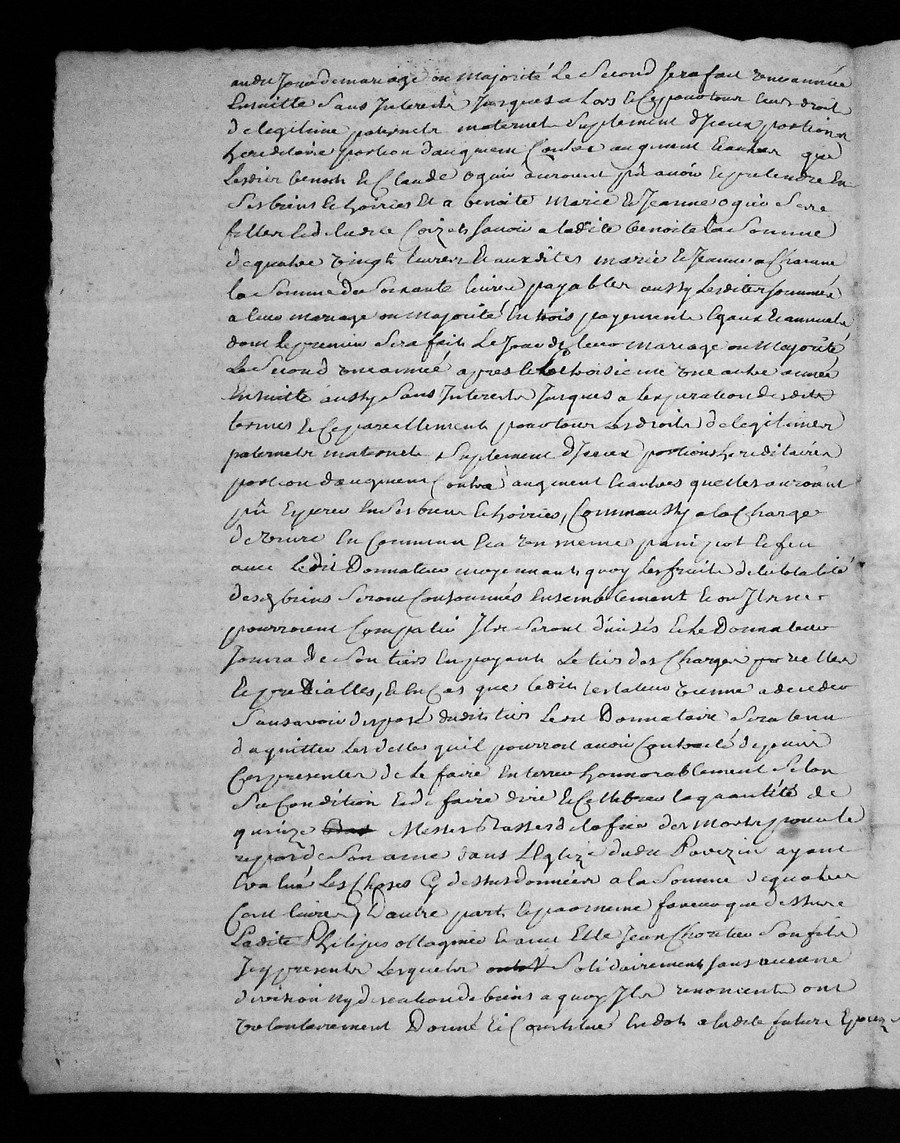 audit Jour de mariage ou Majorité Le Second sera fait une année
Ensuitte Sans Interests Jusques a Lors et Ce pour tous leurs droit
de legitime paternels maternels Suplement d'Iceux portion
hereditaire portion d'augment Contre augment et autres que
Lesdits benoit et Claude ogier auroient pû avoir et pretendre En
Ses biens et hoiries Et a benoite Marie et Jeanne ogier Sere
filles et de ladite Coizet Savoir a ladite benoite La Somme
de quatre vingt livres Et auxdites marie et Jeanne a Chacune
la Somme de Soixante livres payables aussy Lesdites Sommes
a leur mariage ou Majorité En trois payements Egaux Et annuels
dont le premier Sera fait Le Jour de leur mariage ou Majorité
Le Second une année apres et le troisieme une autre année
Ensuitte aussy Sans Interests Jusques a lexpiration desdits
termes et Ce pareillement pour tous Les droits de legitimes
paternels maternels Suplement d'Iceux portions hereditaires
portion d'augment Contre augment et autres quelles auroient
pû Esperer En Ses biens et hoiries, Comme aussy a la Charge
de vivre En Commun Et a un meme pain pot et feu
avec Ledit Donnateur moyennants quoy Les fruits de la totalité
desdits biens Seront Consommés Ensemblement et ou Ils ne
pourroient Compatir Ils Seront divisés et Le Donnateur
Jouira de Son tiers En payant Le tiers des Charges
et predialles, et En Cas que ledit testateur vienne a deceder
Sans avoir disposé dudit tiers Ledit Donnataire Sera tenu
d'aquitter Les dettes quil pourroit avoir Contracté depuis
Ces presentes de le faire Enterrer honnorablement Selon
Sa Condition et de faire dire et Cellebrer la quantité de
quinze Messes Basses de loffice des Morts pour le
repos de Son ame dans LEglize dudit Pavezin ayant
Evalué Les Choses Cy dessus données a la Somme de quatre
Cent livres, D'autre part et par meme forme que dessus
Ladite Philippes ollagnier et avec Elle Jean Chortier Son fils
Icy presents Lesquels Solidairement Sans aucune
division Ny discution de biens a quoy Ils renoncents ont
volontairement Donné Et Constitué En dots a ladite future Epouze